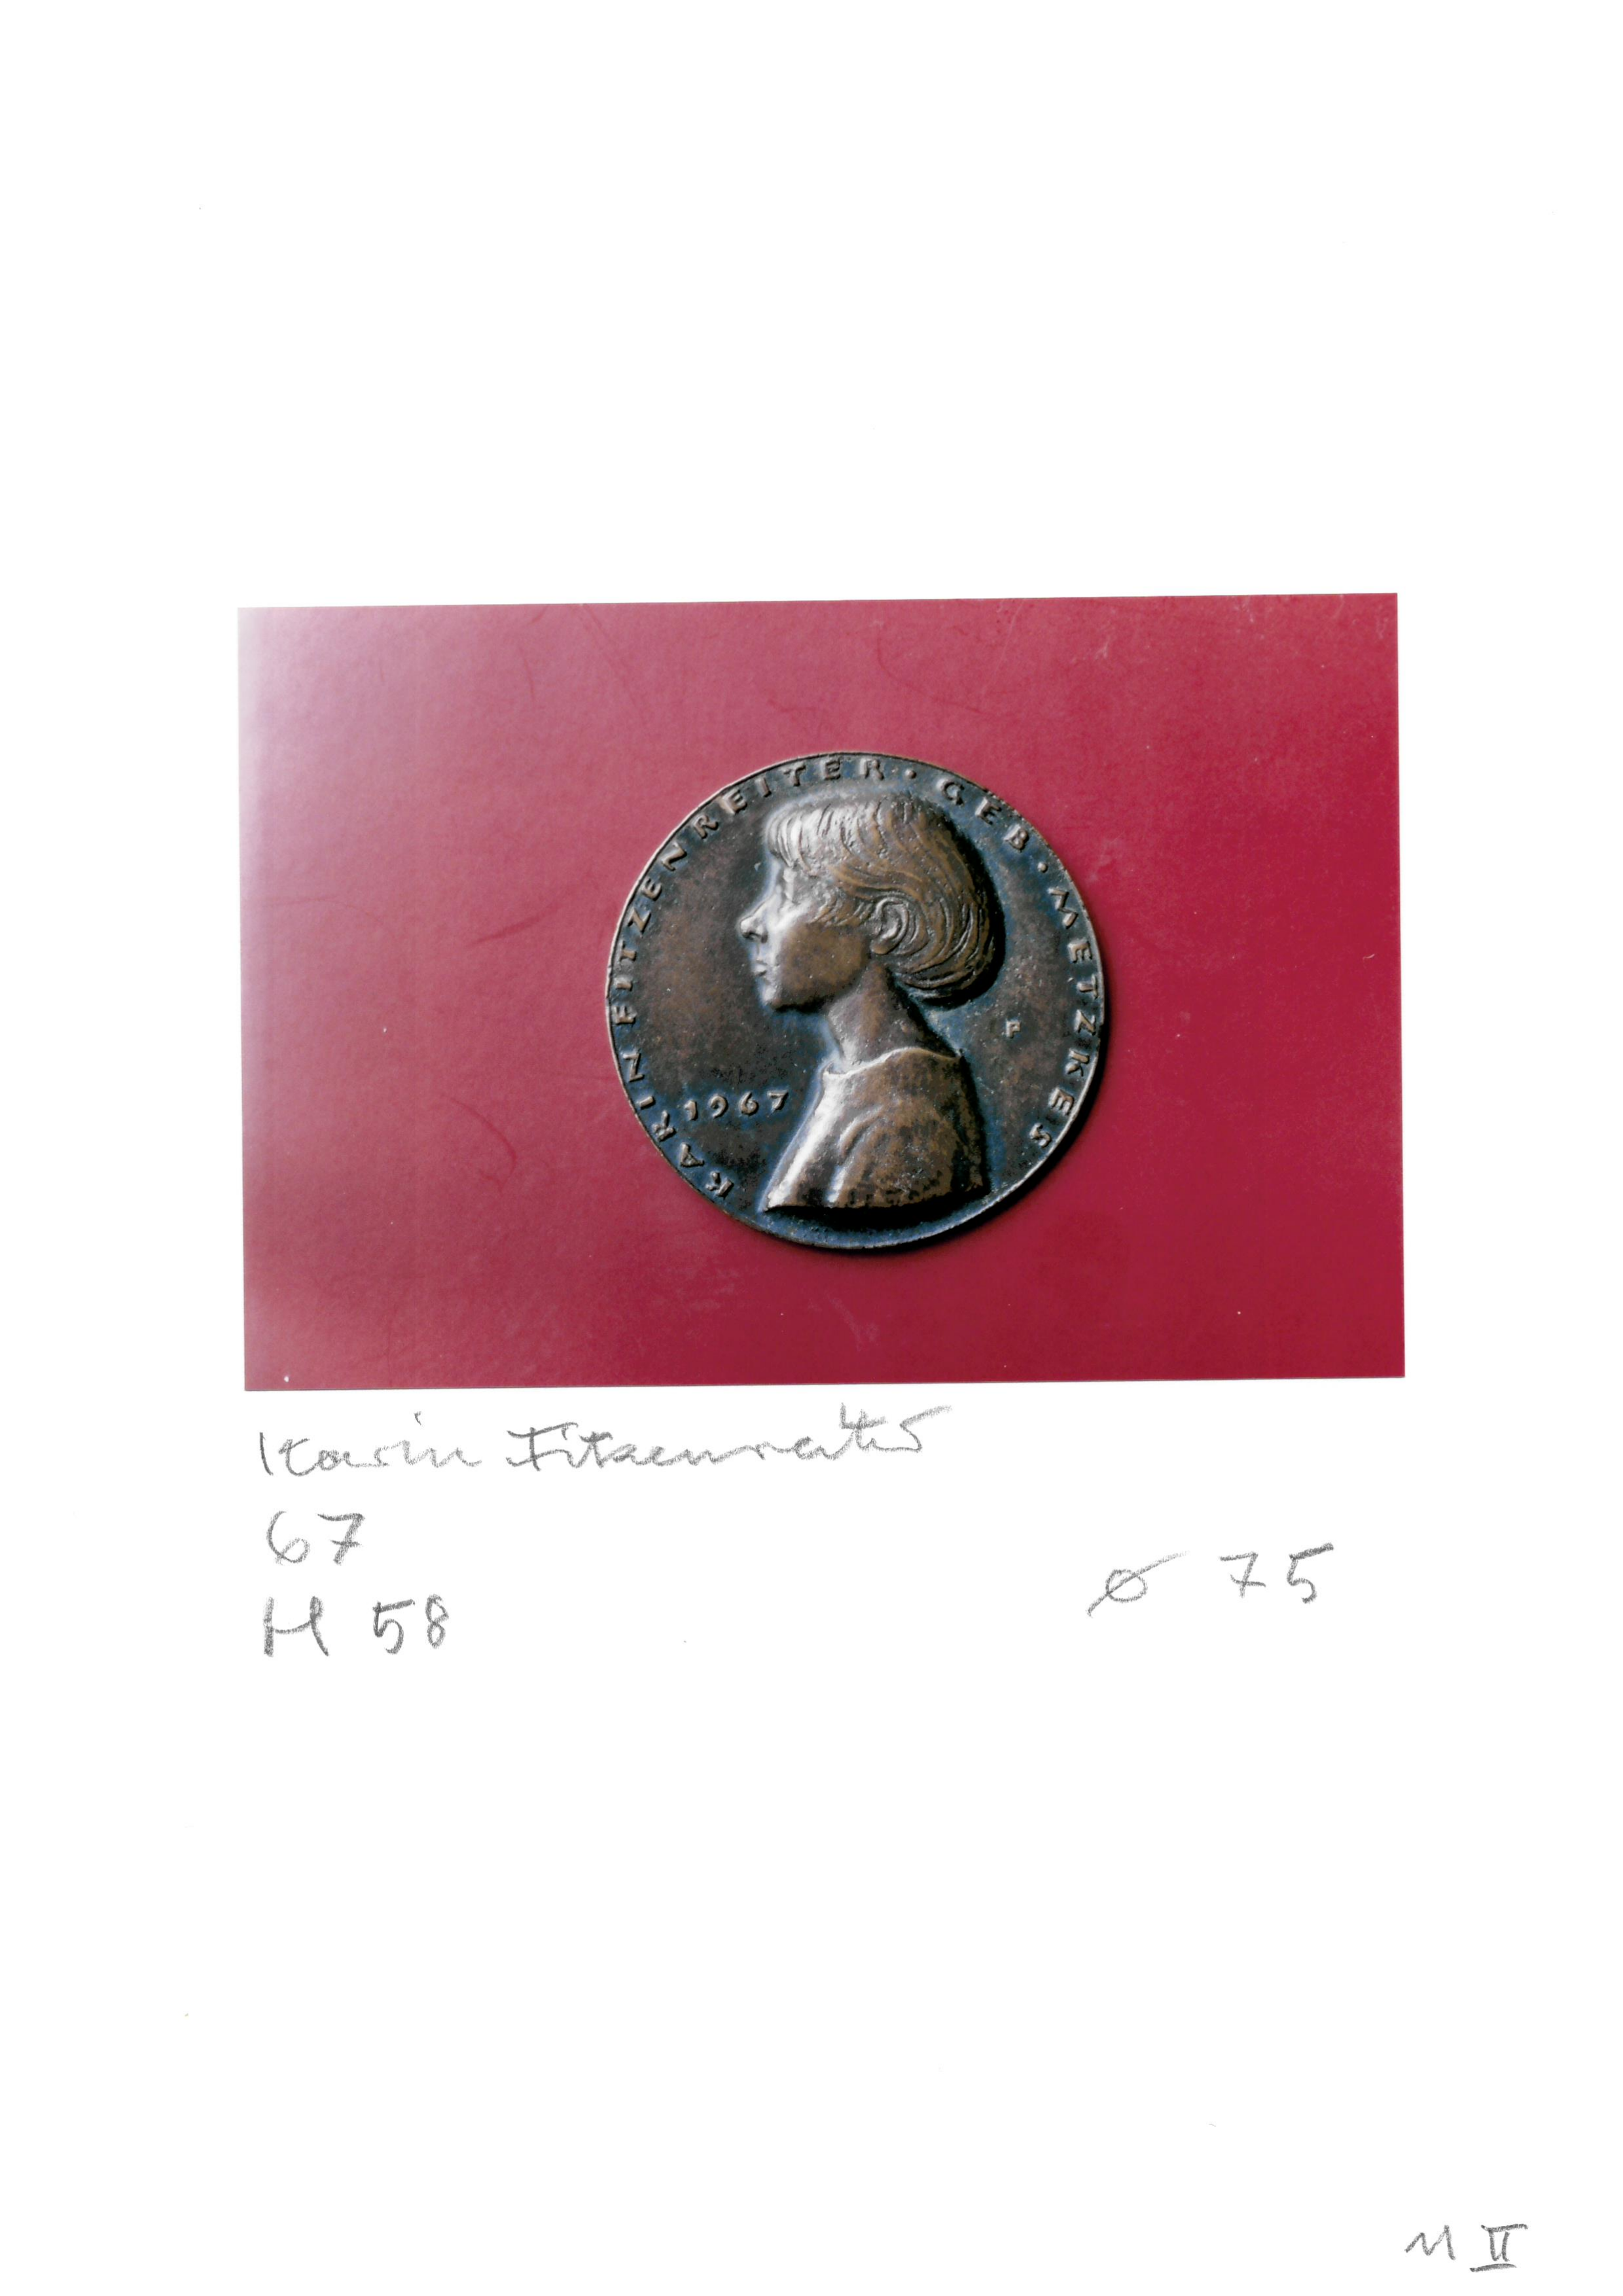 KARIN FITZENREITER · GEB · METZKES
1967
F
Karin Fitzenreiter
67
H 58
ø 75
M II